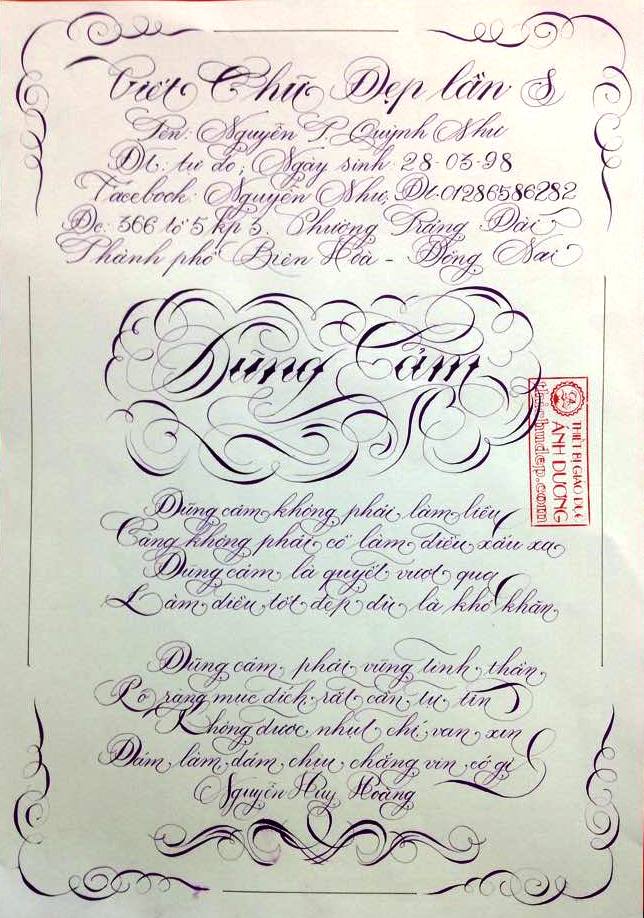 Viết Chữ Đẹp lần 8
Tên: Nguyễn T. Quỳnh Như
Dt: tự do; Ngày sinh 28-03-98
Facebook: Nguyễn Như, Dt: 01286586282
Đc: 366 tổ 5 kp 3. Phường Trảng Dài
Thành phố Biên Hoà - Đồng Nai
Dũng Cảm
Dũng cảm không phải làm liều
Càng không phải cố làm điều xấu xa
Dũng cảm là quyết vượt qua
Làm điều tốt đẹp dù là khó khăn
Dũng cảm phải vững tinh thần
Rõ ràng mục đích rất cần tự tin
Không được nhụt chí van xin
Dám làm dám chịu chẳng vin cớ gì
Nguyễn Huy Hoàng
THIẾT BỊ GIÁO DỤC
ÁNH DƯƠNG